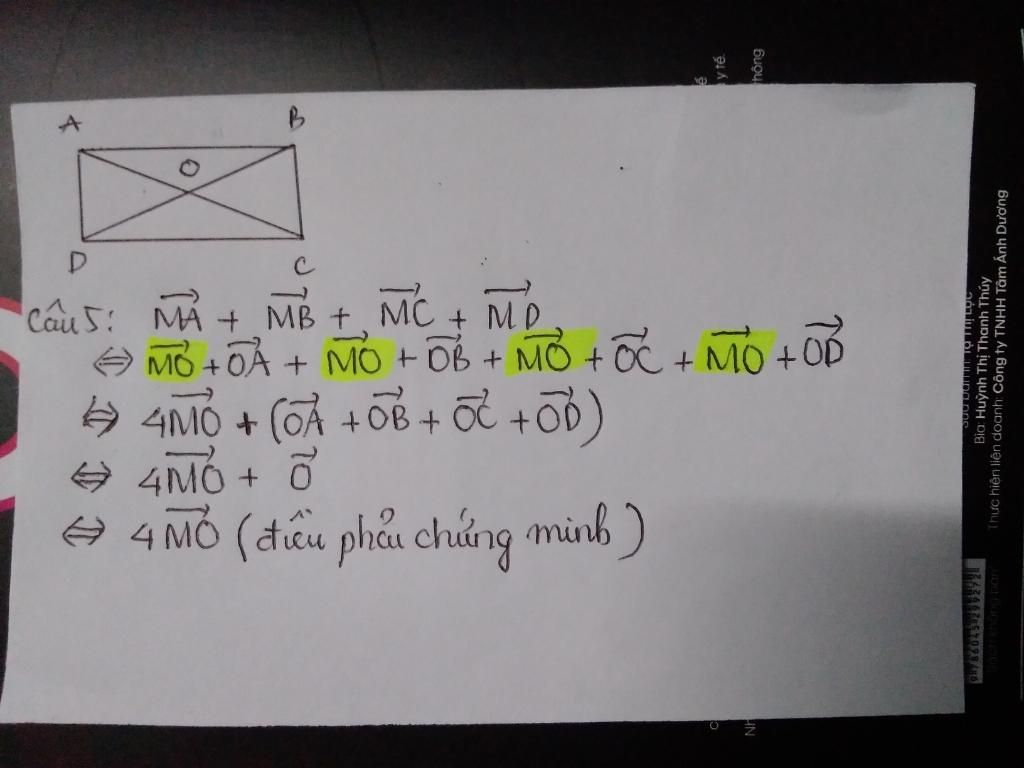 A B
O
D C
Câu 5: MA→ + MB→ + MC→ + MD→
⇔ MO→ + OA→ + MO→ + OB→ + MO→ + OC→ + MO→ + OD→
⇔ 4MO→ + (OA→ + OB→ + OC→ + OD→)
⇔ 4MO→ + O→
⇔ 4MO→ (điều phải chứng minh)
y tế.
thông
Bìa: Huỳnh Thị Thanh Thúy
Thực hiện liên doanh: Công ty TNHH Tâm Ánh Dương